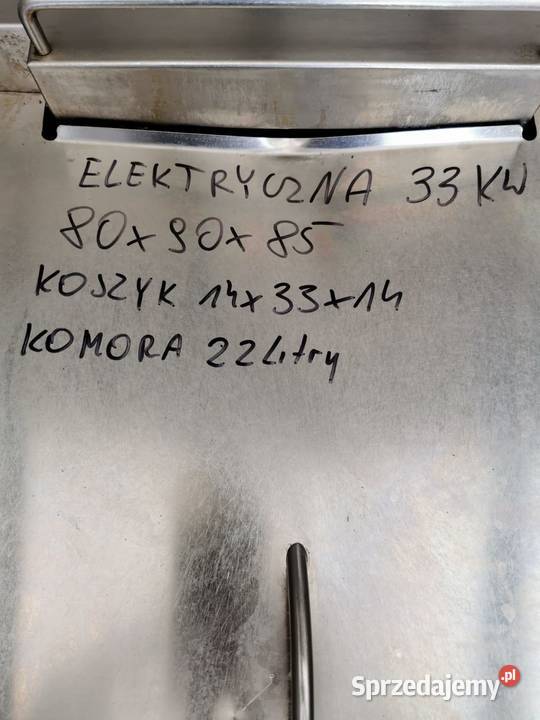 ELEKTRYCZNA 33 KW
80x90x85
KOSZYK 14x33x14
KOMORA 22Litry
Sprzedajemy.pl